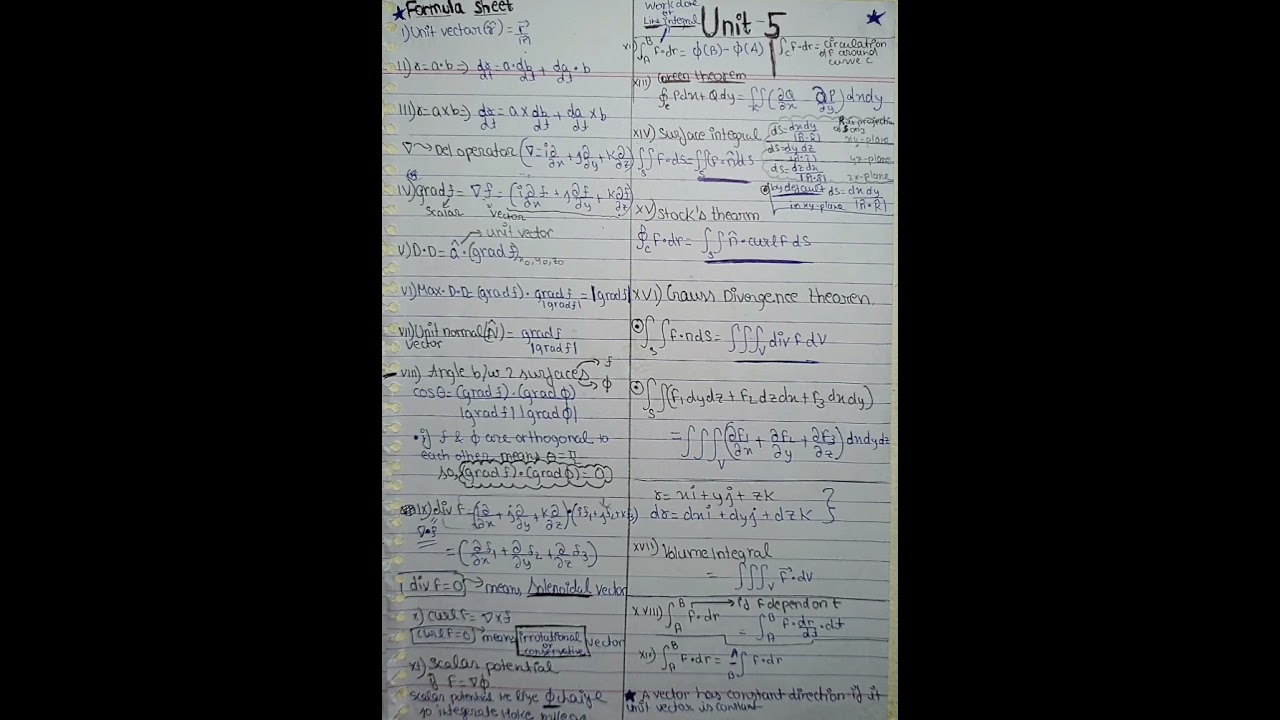 ★ Formula sheet
i) Unit vector (r̂) = r⃗/|r|
ii) r = a·b ⇒ dr/dt = a·db/dt + da/dt·b
iii) r = a×b ⇒ dr/dt = a×db/dt + da/dt×b
∇ → Del operator (∇ = i∂/∂x + j∂/∂y + k∂/∂z)
iv) grad f = ∇f = (i∂f/∂x + j∂f/∂y + k∂f/∂z)
scalar vector
→ unit vector
v) D·D = â·(grad f)x0,y0,z0
vi) Max·D·D = (grad f)·grad f/|grad f| = |grad f|
vii) Unit normal (N̂) = grad f/|grad f|
vector
viii) Angle b/w 2 surfaces → f
→ ϕ
cosθ = (grad f)·(grad ϕ)
|grad f| |grad ϕ|
• if f & ϕ are orthogonal to
each other means θ = π
so, (grad f)·(grad ϕ) = 0
ix) div f = (i∂/∂x + j∂/∂y + k∂/∂z)·(if1+jf2+kf3)
∇·f
= (∂/∂x f1 + ∂/∂y f2 + ∂/∂z f3)
div f = 0 → means Solenoidal vector
x) curl f = ∇×f
curl f = 0 means irrotational or conservative vector
xi) Scalar potential
if F = ∇ϕ
scalar potential ke liye ϕ chaiye
to integrate
work done
or
Line integral
Unit-5 ★
∫A^B F·dr = ϕ(B) − ϕ(A)
∫c F·dr = circulation
of F around
curve c
xiii) Green theorem
∮c Pdx + Qdy = ∬R (∂Q/∂x ∂P/∂y) dxdy
xiv) Surface integral
∬s F·ds = ∬s (F·n̂) ds
R is projection
of S on
ds = dxdy/|n̂·k̂| xy-plane
ds = dydz/|n̂·î| yz-plane
ds = dzdx/|n̂·ĵ| zx-plane
by default ds = dxdy
in xy-plane |n̂·k̂|
xv) stock's theorem
∮c F·dr = ∬s n̂·curl F ds
xvi) Gauss Divergence theorem.
∬s F·n ds = ∭v div F dV
∬s (f1 dydz + f2 dzdx + f3 dxdy)
= ∭v (∂f1/∂x + ∂f2/∂y + ∂f3/∂z) dxdydz
r = xi + yj + zk
dr = dxi + dyj + dzk }
xvii) Volume integral
= ∭v F⃗·dV
xviii) ∫A^B F·dr → if F depend on t
= ∫A^B F·dr/dt·dt
∫A^B F·dr = ∫ F·dr
★ A vector has constant direction if it
unit vector is constant